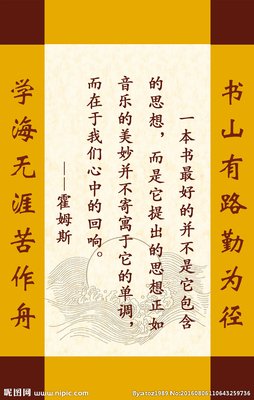 书山有路勤为径
一本书最好的并不是它包含
的思想，而是它提出的思想正如
音乐的美妙并不寄寓于它的单调，
而在于我们心中的回响。
——霍姆斯
学海无涯苦作舟
昵图网 www.nipic.com
By:attoz1989 No:20160806110643259736